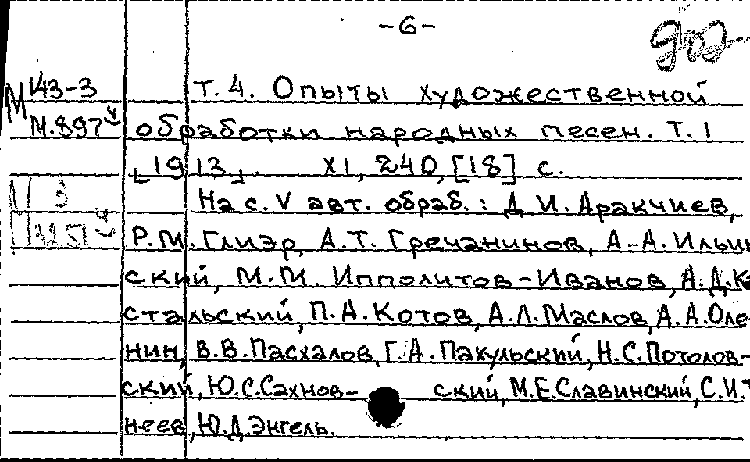 -6-
М 143-3 Т. 4. Опыты художественной
М.897 обработки народных песен. Т. 1
[1913]. XI, 240, [18] с.
3 На с. V авт. обраб.: Д. И. Аракчиев,
3251 Р. М. Глиэр, А. Т. Гречанинов, А. А. Ильин
ский, М. М. Ипполитов-Иванов, А. Д. Ка
стальский, П. А. Котов, А. Л. Маслов, А. А. Оле
нин, В. В. Пасхалов, Г. А. Пакульский, Н. С. Потолов-
ский, Ю. С. Сахнов- ский, М. Е. Славинский, С. И. Т
неев, Ю. Д. Энгель.